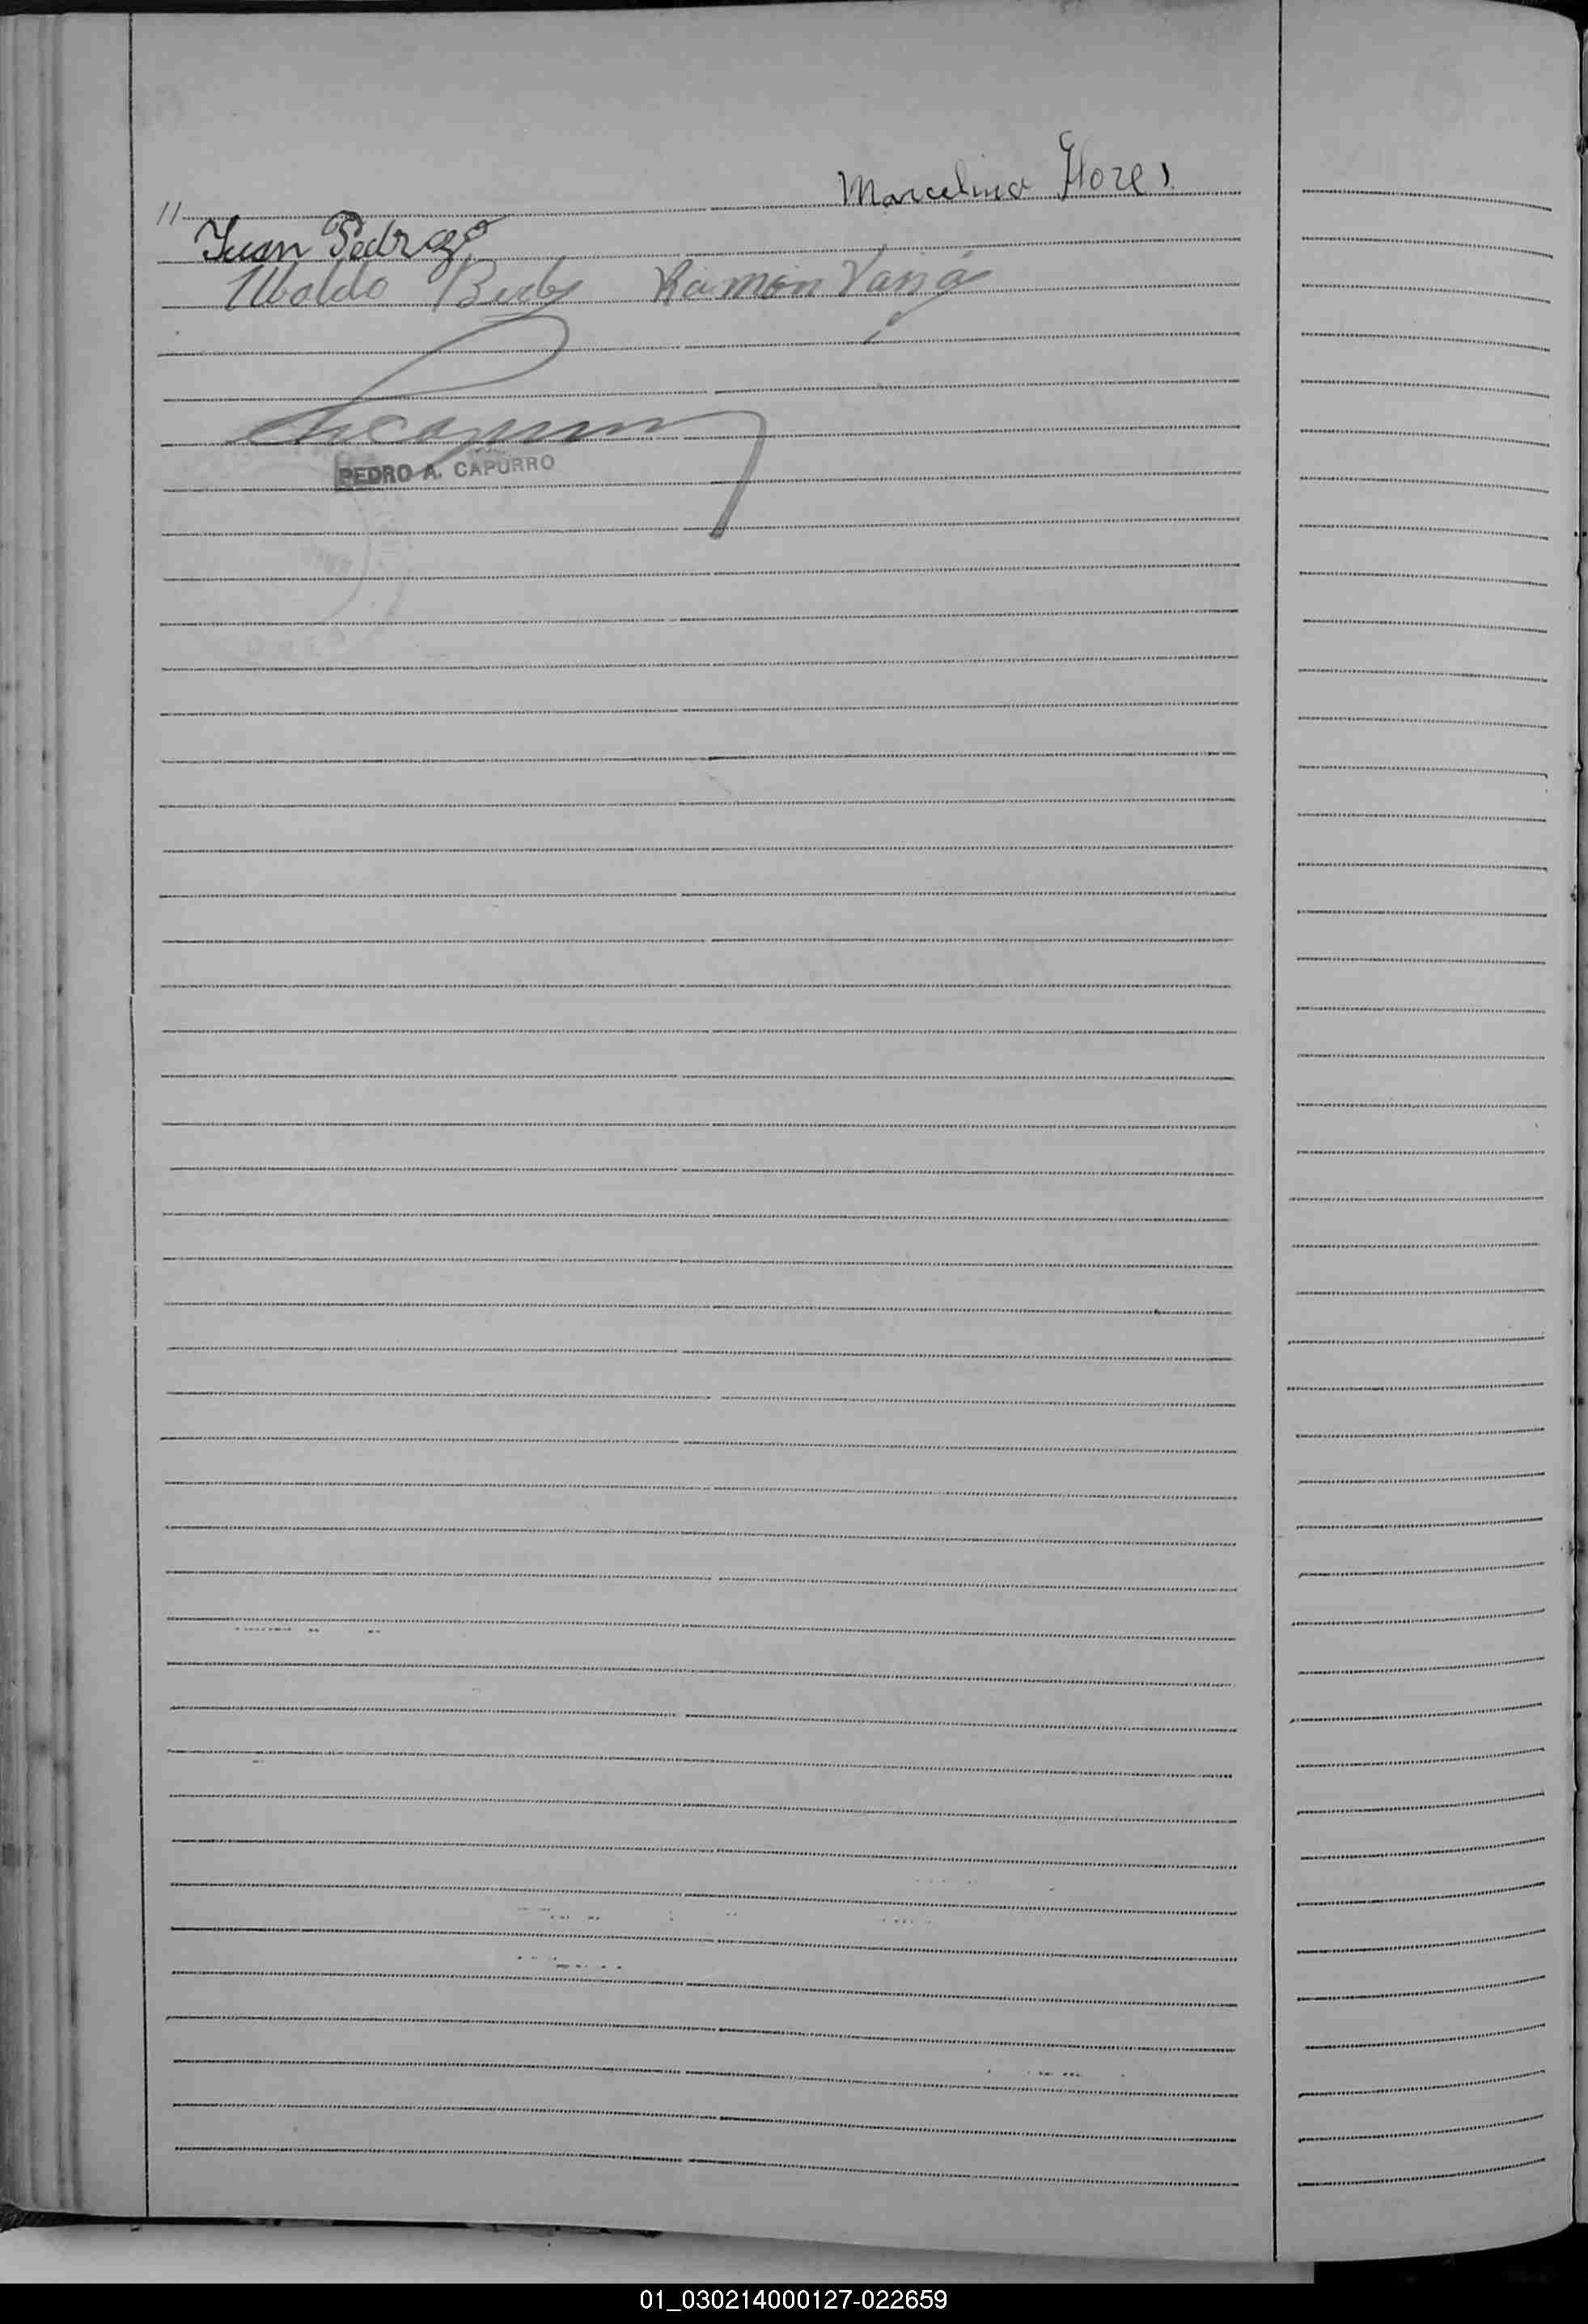 Marcelino Flores
" Juan Pedrozo
Ubaldo Ramón
PEDRO A. CAPURRO
01_030214000127-022659